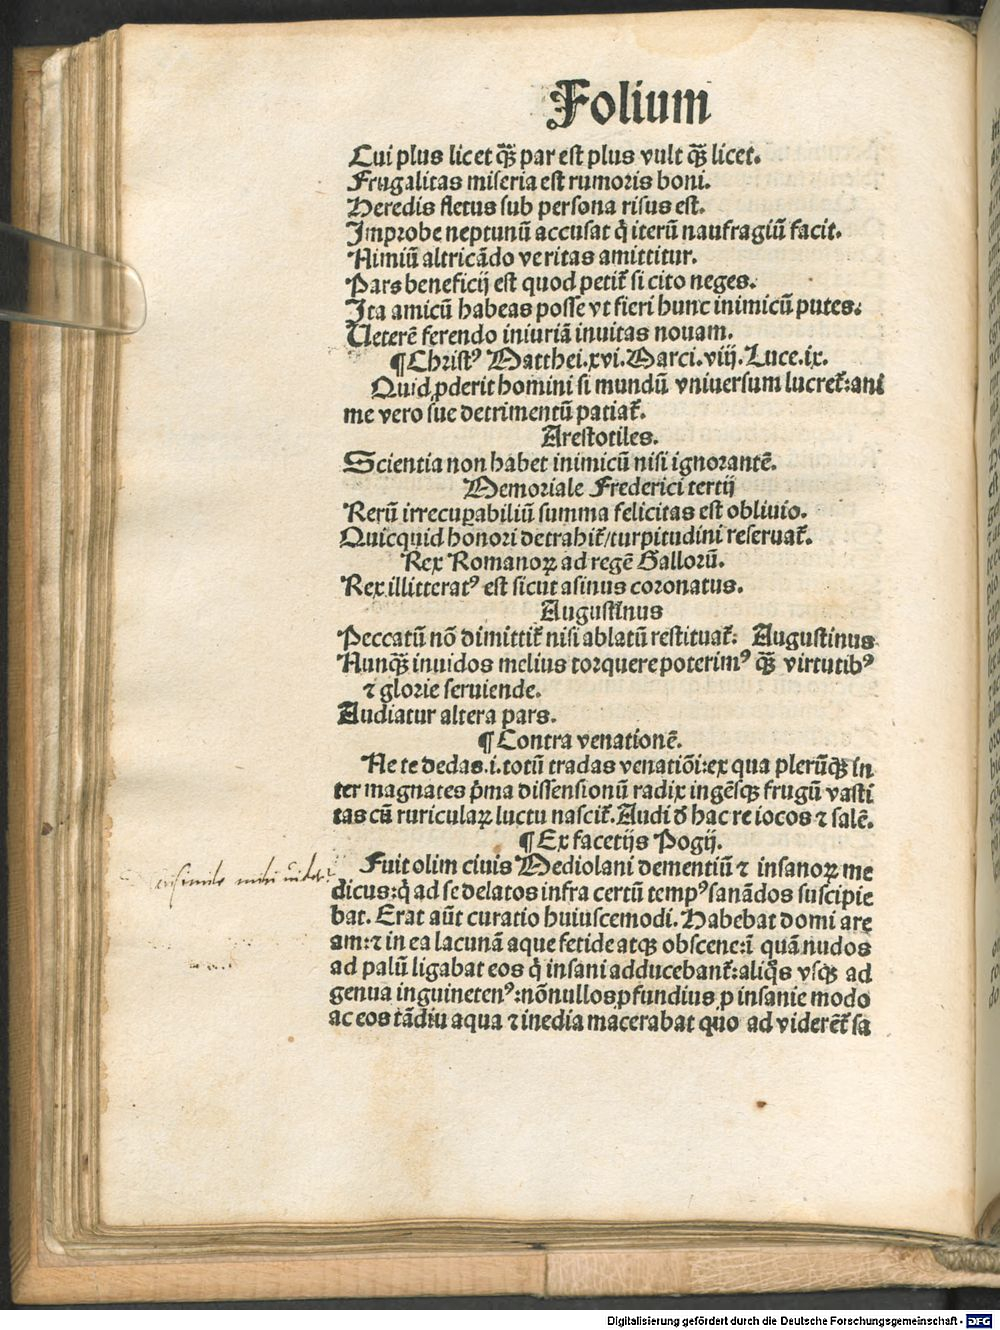 Folium
Cui plus licet qꝫ̃ par est plus vult qꝫ̃ licet.
Frugalitas miseria est rumoris boni.
Heredis fletus sub persona risus est.
Improbe neptunũ accusat q̇ iterũ naufragiũ facit.
Nimiũ altricãdo veritas amittitur.
Pars beneficij est quod petit̃ si cito neges.
Ita amicũ habeas posse vt fieri hunc inimicũ putes.
Ueterẽ ferendo iniuriã inuitas nouam.
¶ Christꝰ Matthei.xvi.Marci.viij.Luce.ix.
Quid ꝓderit homini si mundũ vniuersum lucret̃:ani
me vero sue detrimentũ patiat̃.
Arestotiles.
Scientia non habet inimicũ nisi ignorantẽ.
Memoriale Frederici tertij
Rerũ irrecuꝑabiliũ summa felicitas est obliuio.
Quicquid honori detrahit̃/turpitudini reseruat̃.
Rex Romanoꝝ ad regẽ Gallorũ.
Rex illitteratꝰ est sicut asinus coronatus.
Augustinus
Peccatũ nõ dimittit̃ nisi ablatũ restituat̃: Augustinus
Nunqꝫ̃ inuidos melius torquere poterimꝰ qꝫ̃ virtutibꝰ
⁊ glorie seruiende.
Audiatur altera pars.
¶ Contra venationẽ.
Ne te dedas.i.totũ tradas venatiõi:ex qua plerũqꝫ in
ter magnates p̃ma dissensionũ radix ingẽsqꝫ frugũ vasti
tas cũ ruriculaꝝ luctu nascit̃.Audi d̃ hac re iocos ⁊ salẽ.
¶ Ex facetijs Pogij.
Fuit olim ciuis Mediolani dementiũ ⁊ insanoꝝ me
dicus:q̇ ad se delatos infra certũ tempꝰ sanãdos suscipie
bat. Erat aũt curatio huiuscemodi. Habebat domi are
am:⁊ in ea lacunã aque fetide atqꝫ obscene:ĩ quã nudos
ad palũ ligabat eos q̇ insani adducebant̃:aliq̃s vsqꝫ ad
genua inguinetenꝰ:nõnullos ꝓfundius ꝓ insanie modo
ac eos tãdiu aqua ⁊ inedia macerabat quo ad viderẽt̃ sa
Digitalisierung gefördert durch die Deutsche Forschungsgemeinschaft - DFG